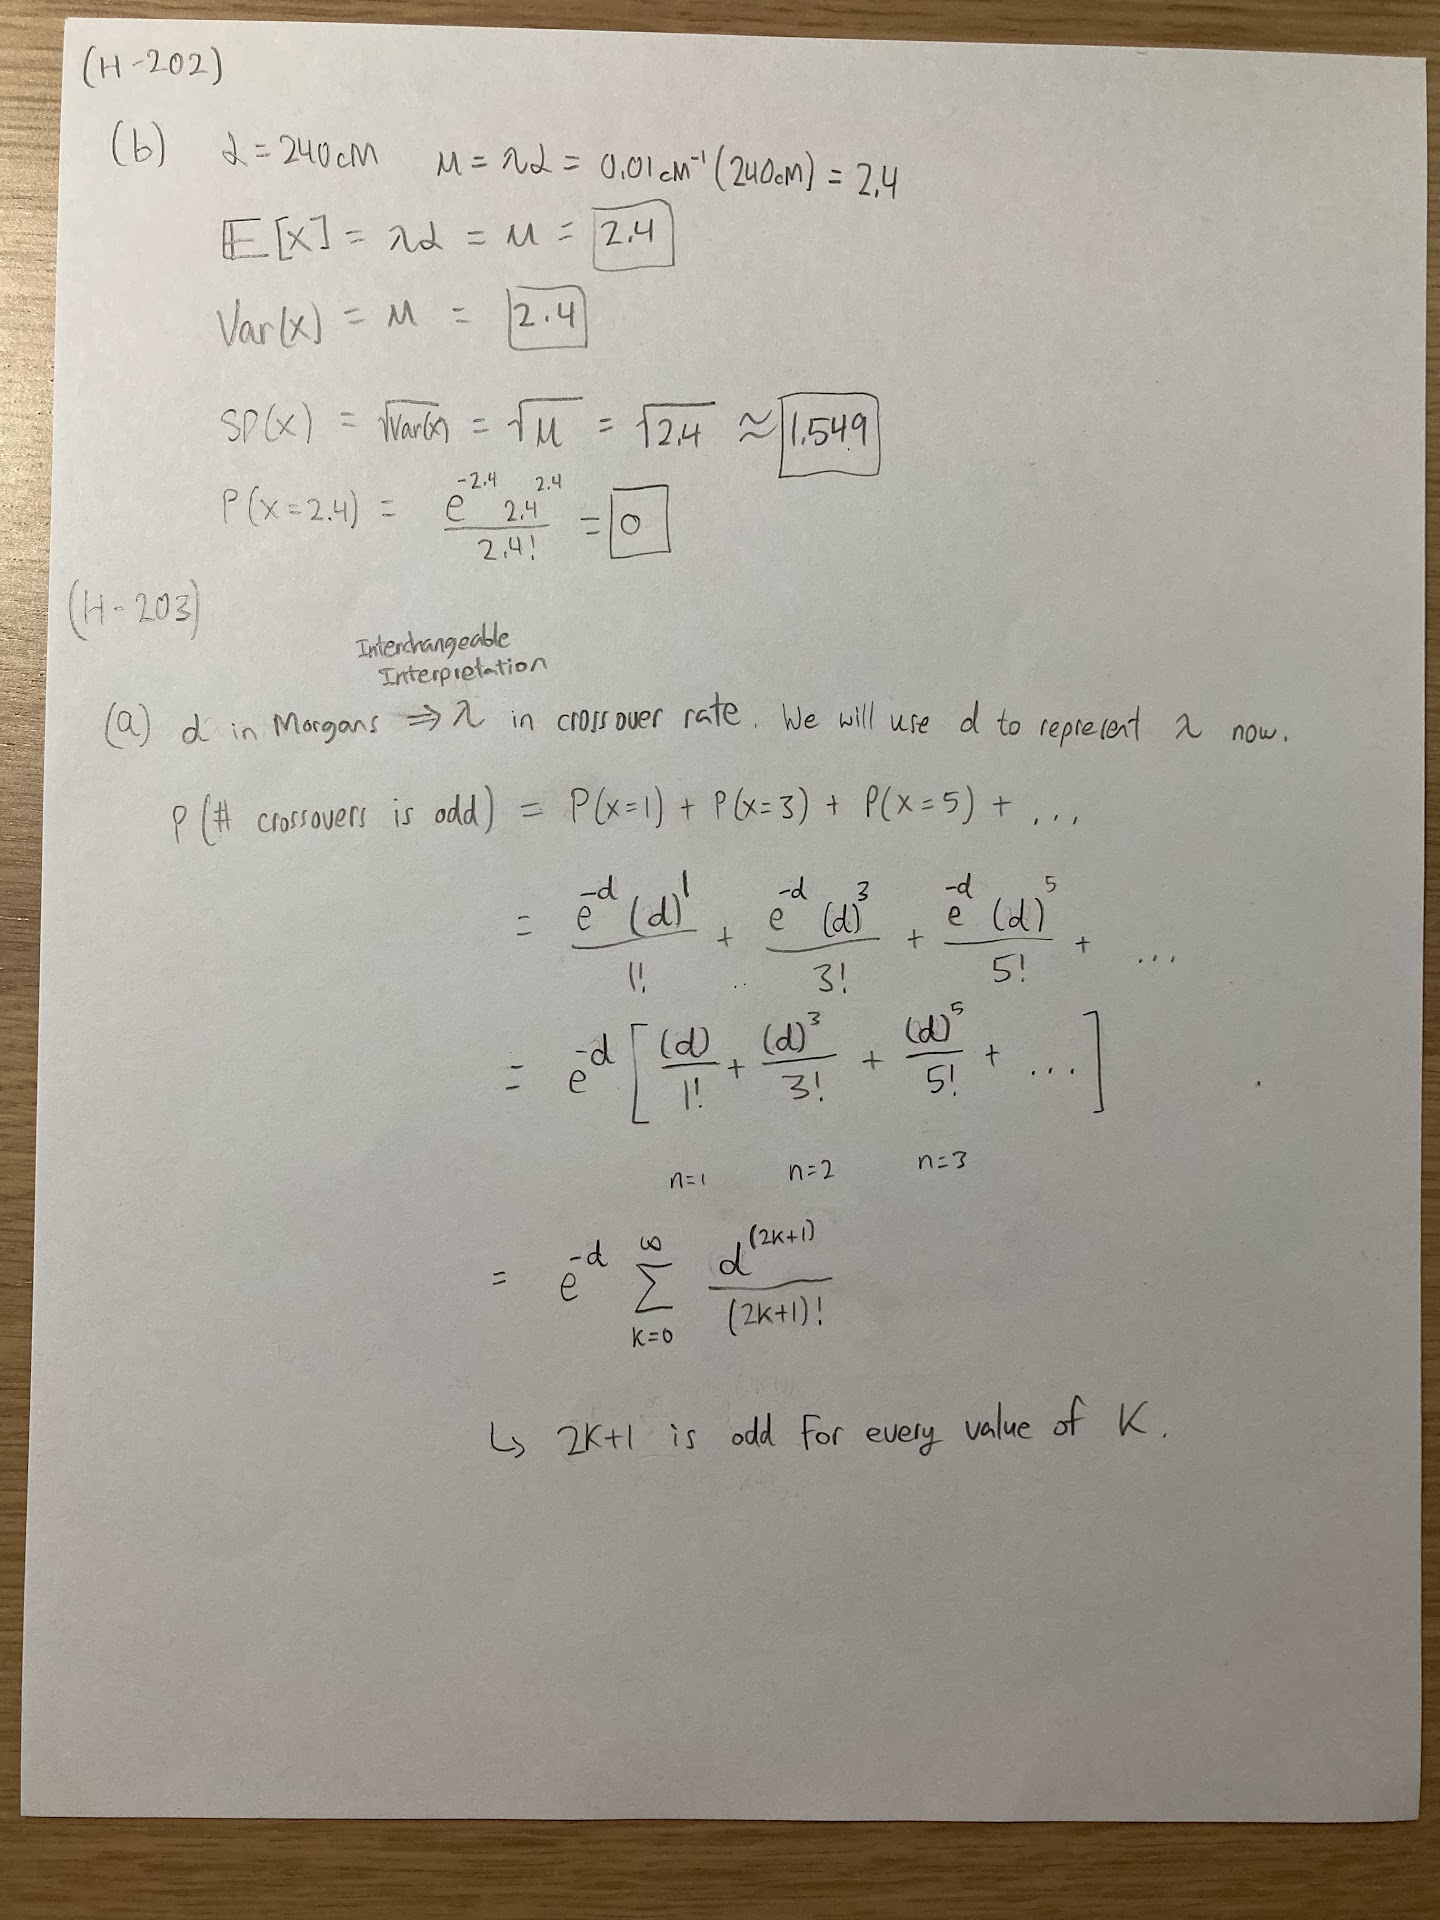 (H-202)
(b) d = 240cM μ = λd = 0.01cM⁻¹(240cM) = 2.4
E[X] = λd = μ = 2.4
Var(X) = μ = 2.4
SD(X) = √Var(X) = √μ = √2.4 ≈ 1.549
P(X=2.4) = e^-2.4 2.4^2.4 / 2.4! = 0
(H-203)
Interchangeable
Interpretation
(a) d in Morgans ⇒ λ in crossover rate. We will use d to represent λ now.
P(# crossovers is odd) = P(X=1) + P(X=3) + P(X=5) + ...
= e^-d (d)^1 / 1! + e^-d (d)^3 / 3! + e^-d (d)^5 / 5! + ...
= e^-d [ (d) / 1! + (d)^3 / 3! + (d)^5 / 5! + ... ]
n=1 n=2 n=3
= e^-d ∑_{k=0}^{∞} d^(2k+1) / (2k+1)!
↳ 2k+1 is odd for every value of k.